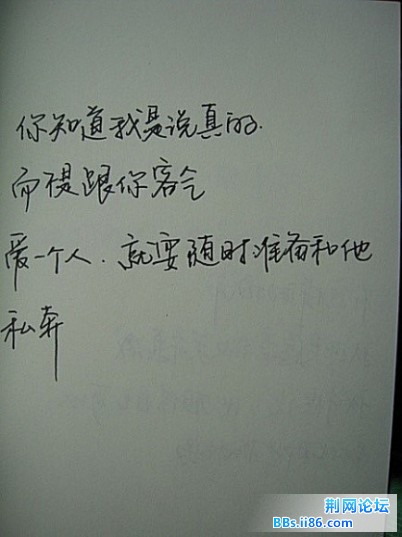 你知道我是说真的.
而不是跟你客气
爱一个人.就要随时准备和他
私奔
荆网论坛
BBs.ii86.com